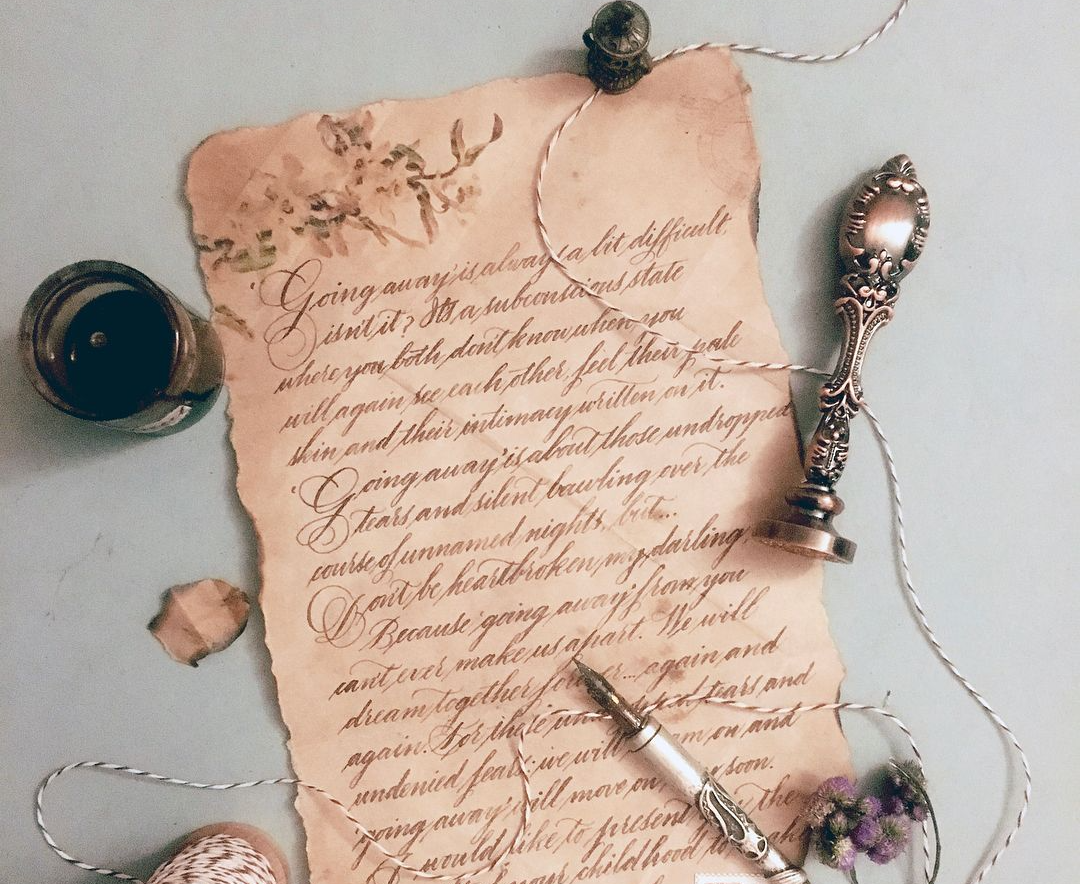 'Going away' is always a bit difficult,
isn't it? It's a subconscious state
where you both don't know when you
will again see each other, feel their pale
skin and their intimacy written on it.
'Going away' is about those undropped
tears and silent bawling over the
course of unnamed nights, but...
Don't be heartbroken, my darling,
Because 'going away' from you
can't ever make us apart. We will
dream together ... again and
again. For these tears and
undenied fears; we will on and
'going away' will move on soon.
I would like to present the
your childhood to